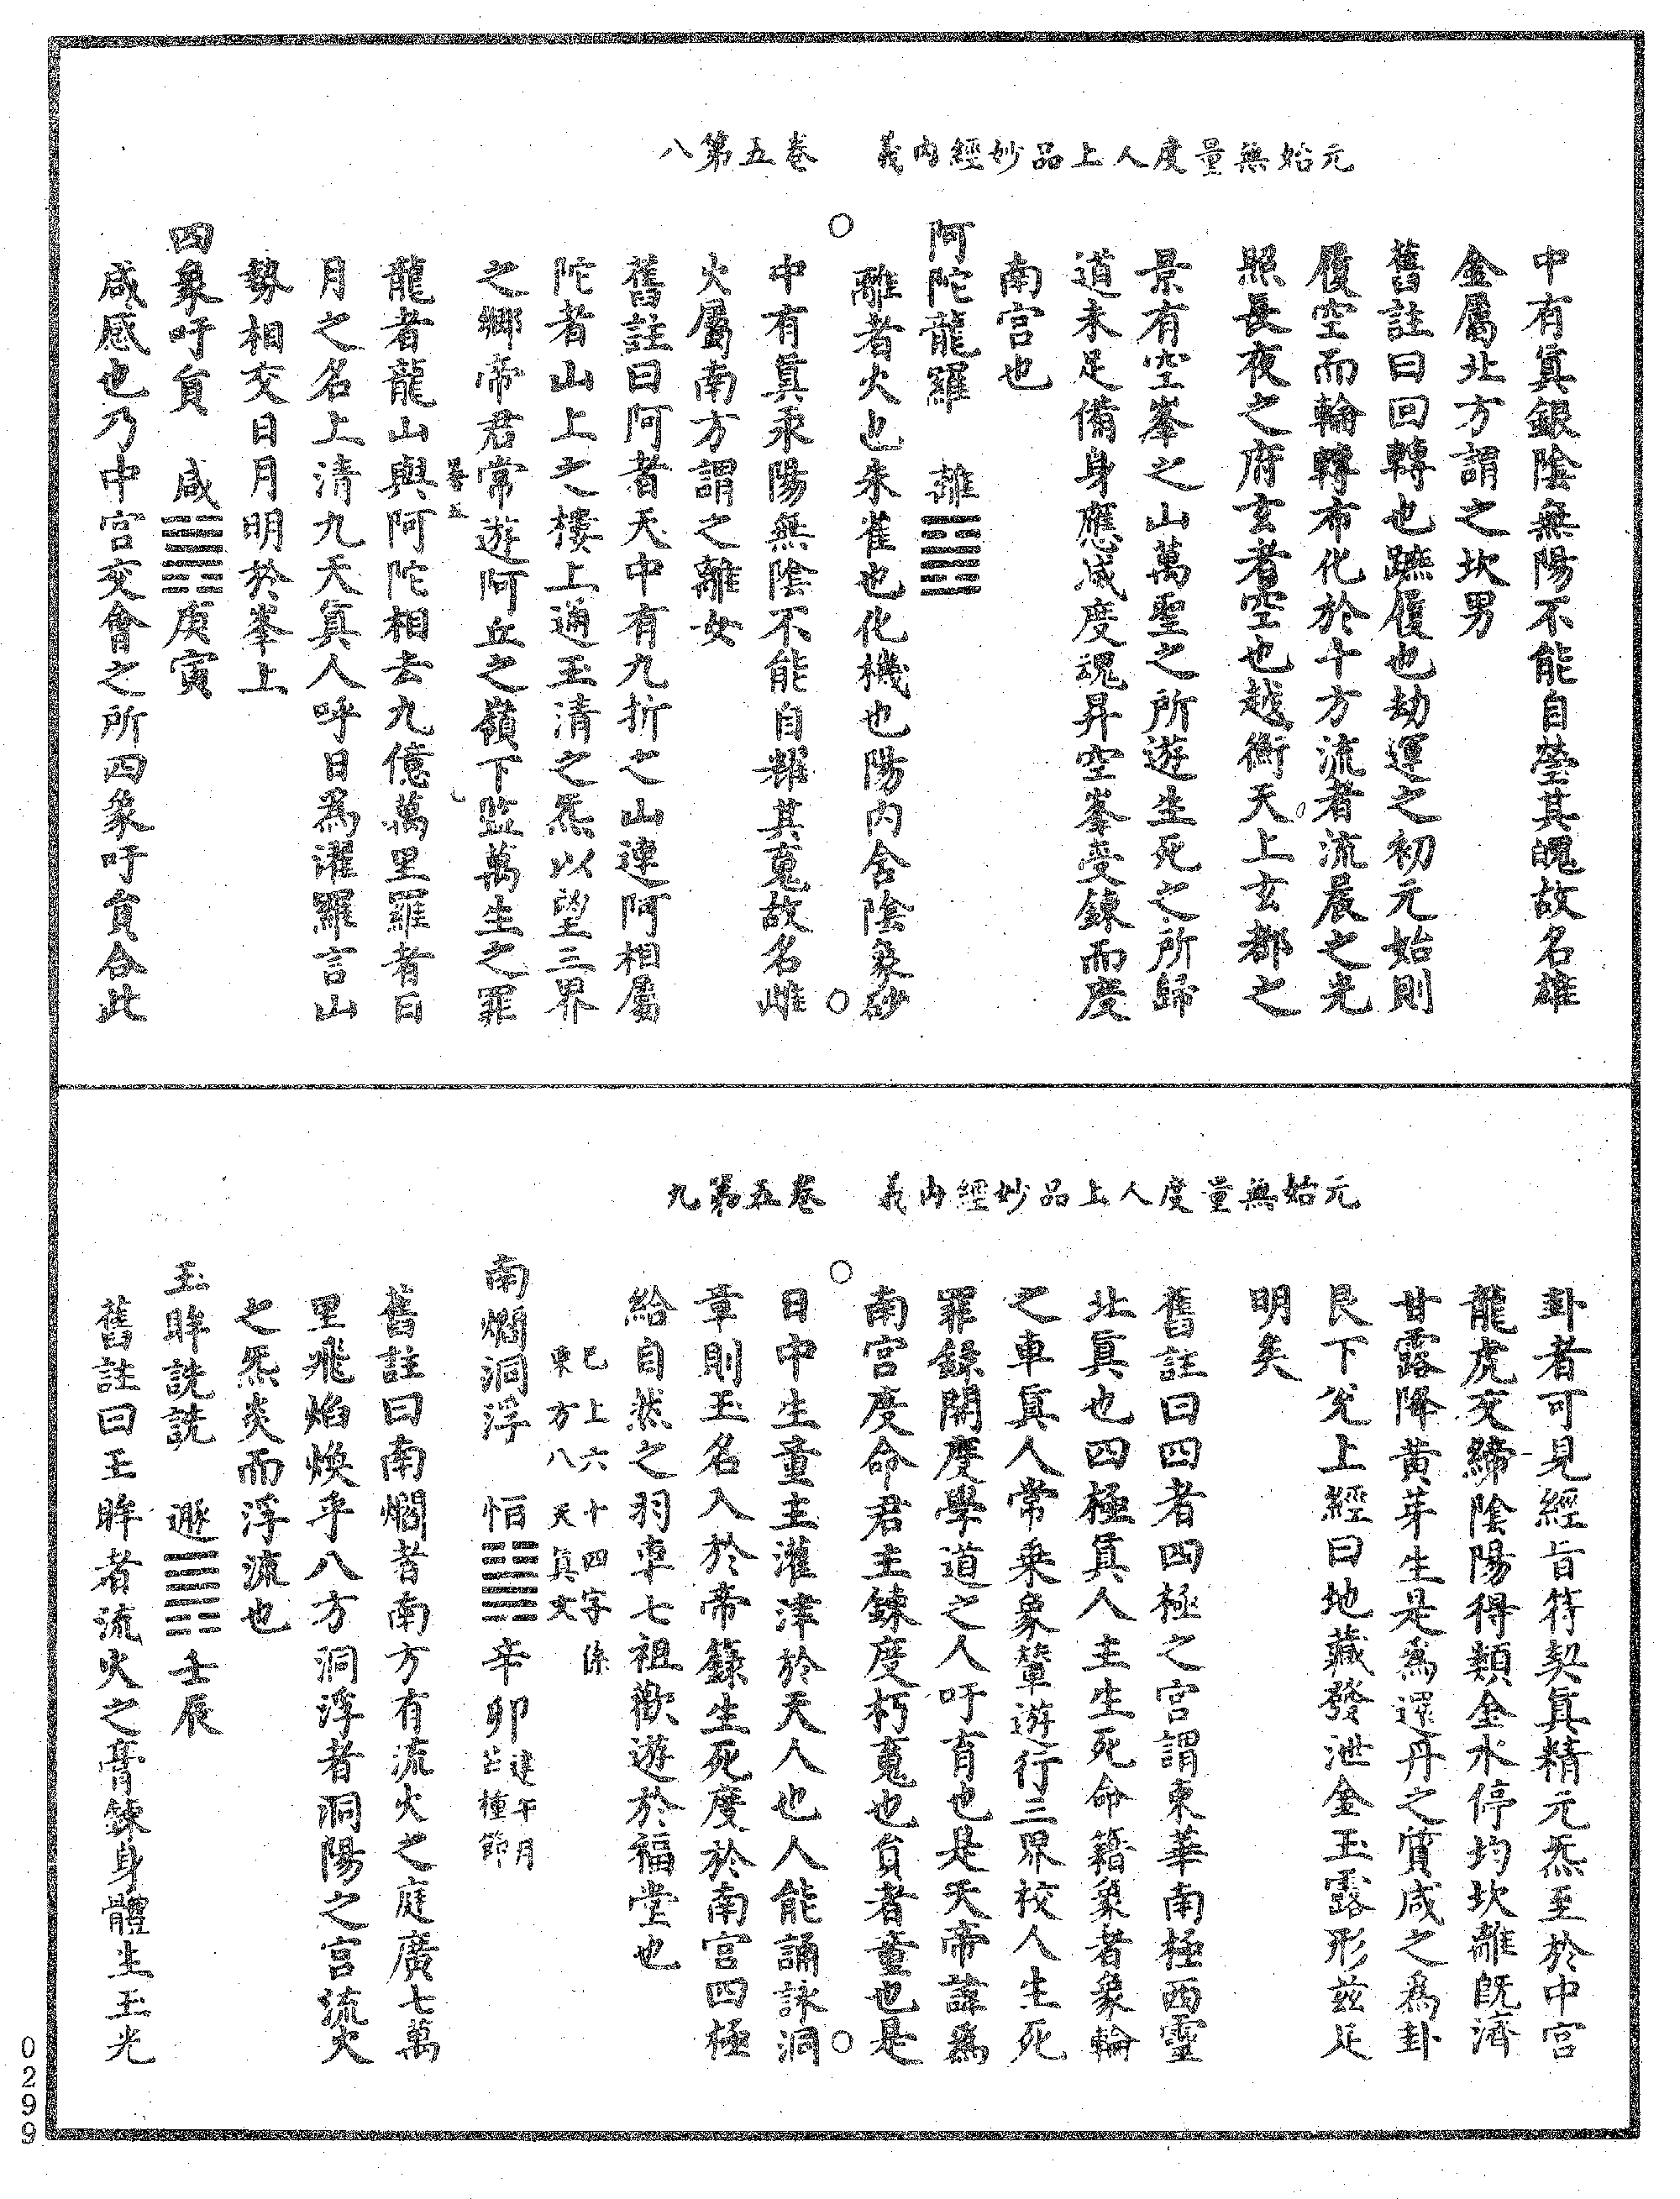 元始無量度人上品妙經內義　卷五第八
中有真銀陰無陽不能自瑩其魄故名雄
金屬北方謂之坎男
舊註曰回轉也蹠履也劫運之初元始則
履空而輪轉布化於十方流者流晨之光
照長夜之府玄者空也越衡天上玄都之
景有空峯之山萬聖之所遊生死之所歸
道未足備身應咸度魂昇空峯受鍊而度
南宮也
阿陀龍羅　離䷝
離者火也朱雀也化機也陽內含陰象砂
中有真汞陽無陰不能自耀其䰟故名雌
火屬南方謂之離女
舊註曰阿者天中有九折之山連阿相屬
陀者山上之樓上通玉清之炁以望三界
之鄉帝君常遊阿丘之嶺下監萬生之罪
龍者龍山與阿陀相去九億萬里羅者日
月之名上清九天真人呼日為濯羅言山
勢相交日月明於峯上
四象吁員　咸䷞庚寅
咸感也乃中宮交會之所四象吁員合此
元始無量度人上品妙經內義　卷五第九
卦者可見經旨符契真精元炁至於中宮
龍虎交締陰陽得類金水停均坎離既濟
甘露降黃芽生是為還丹之質咸之為卦
艮下兌上經曰地藏發泄金玉露形茲足
明矣
舊註曰四者四極之宮謂東華南極西靈
北真也四極真人主生死命籍象者象輪
之車真人常乘象輦遊行三界校人生死
罪錄開度學道之人吁育也是天帝諱為
南宮度命君主鍊度朽䰟也員者童也是
日中生童主灌津於天人也人能誦詠洞
章則玉名入於帝籙生死度於南宮四極
給自然之羽車七祖歡遊於福堂也
已上六十四字係
東方八天真文
南爓洞浮　恒䷟辛卯建午月芒種節
舊註曰南爓者南方有流火之庭廣七萬
里飛焰煥乎八方洞浮者洞陽之宮流火
之炁炎而浮流也
玉眸詵詵　遯䷠壬辰
舊註曰玉眸者流火之膏鍊身體生玉光
0299